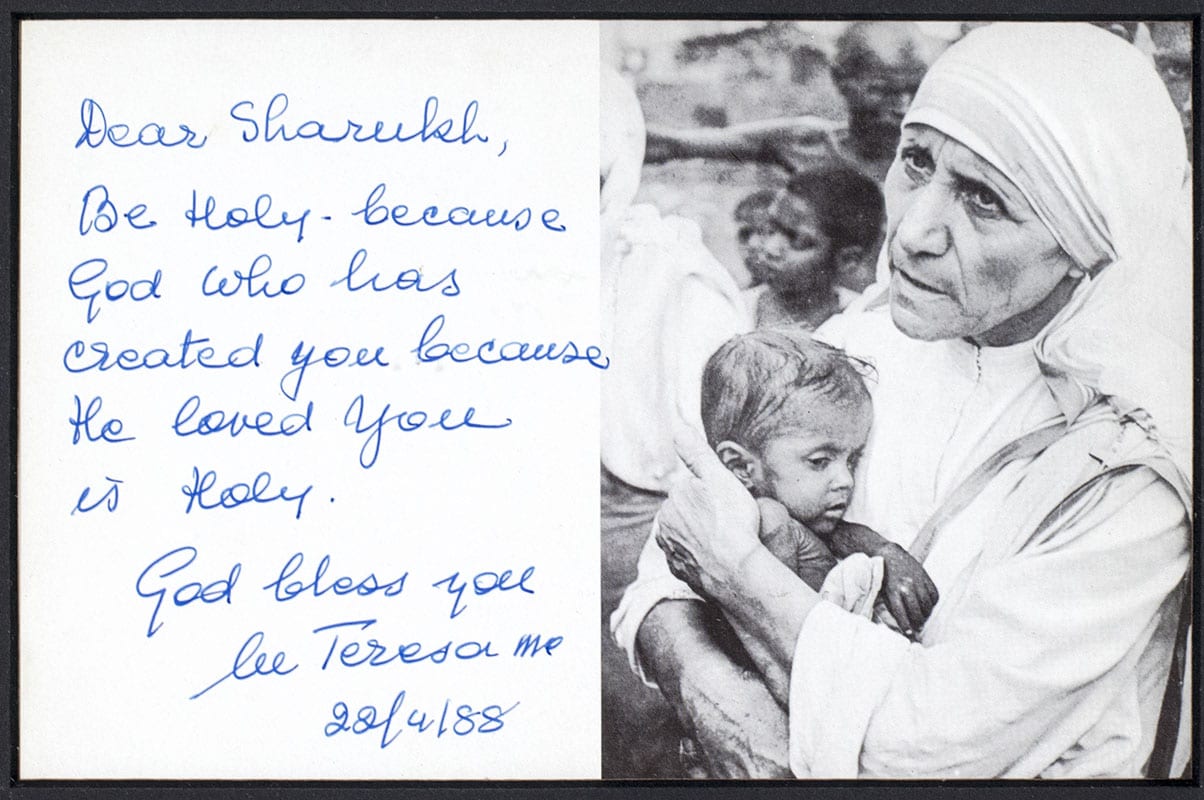 Dear Sharukh,
Be Holy - because
God who has
created you because
He loved You
is Holy.
God bless you
lle Teresa mc
22/4/88